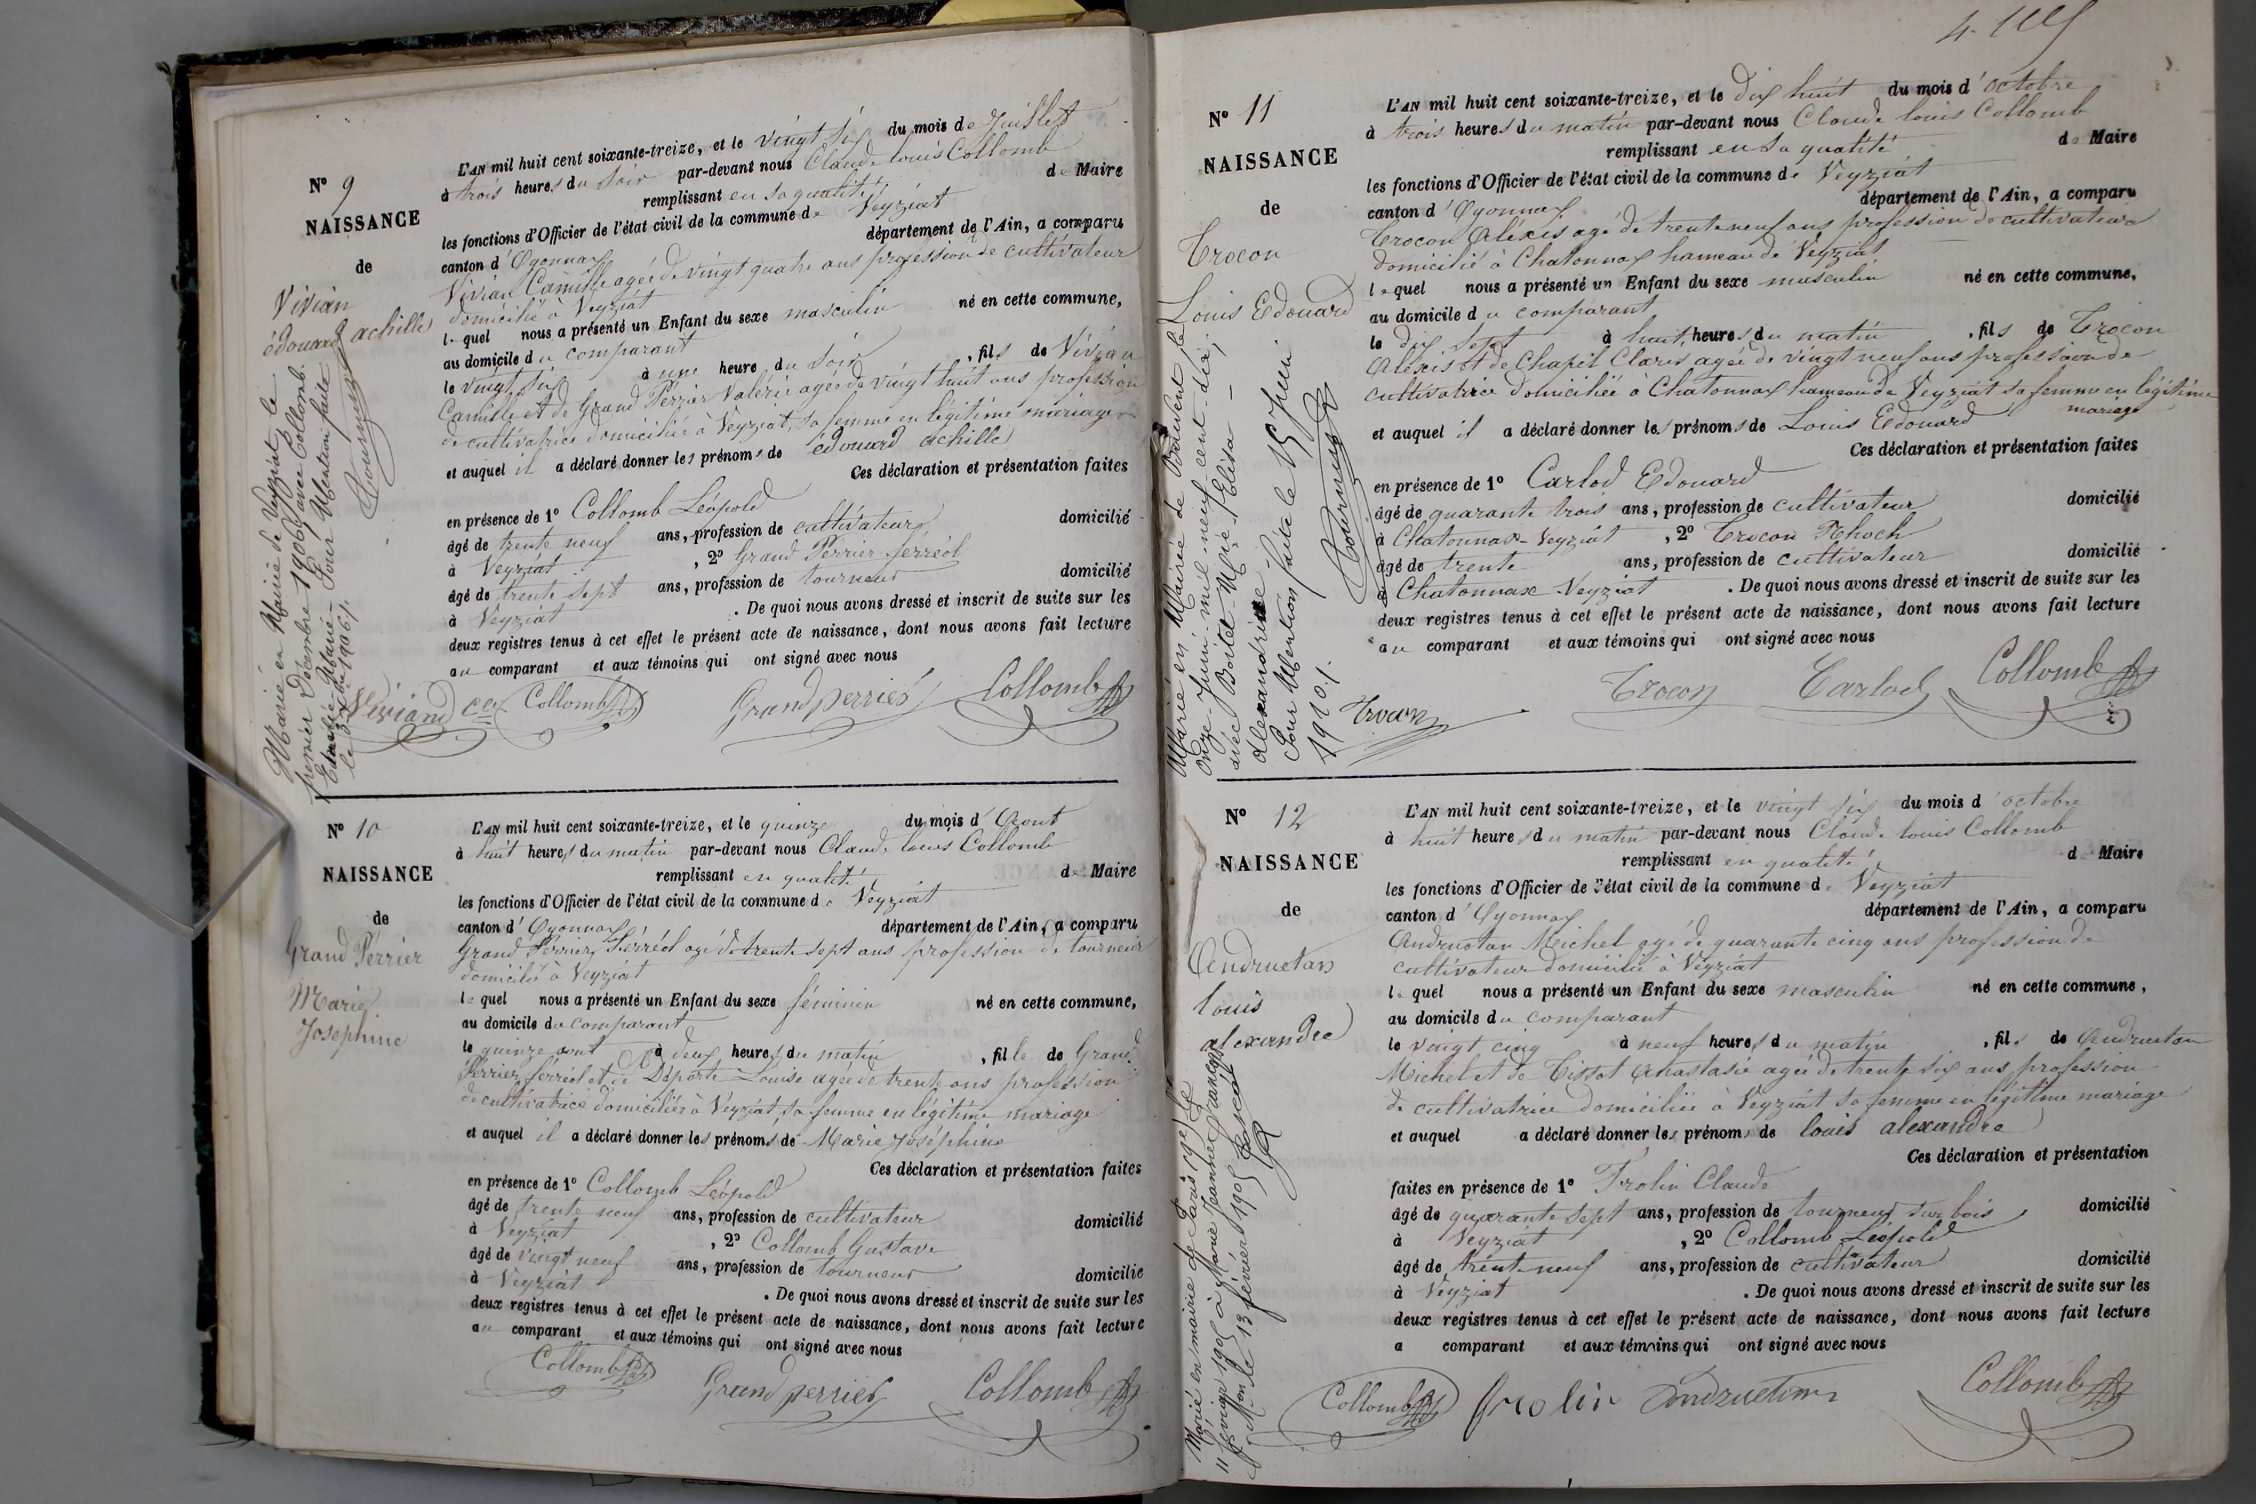 Nº 9
NAISSANCE
de
Vivian
édouard achille
Marié en Mairie de Veyziat le
premier Décembre 1906 avec Collomb
Pour Mention faite
L'AN mil huit cent soixante-treize, et le vingt six du mois de Juillet
à trois heures du Soir par-devant nous Claude louis Collomb
remplissant en sa qualité de Maire
les fonctions d'Officier de l'état civil de la commune de Veyziat
canton d'Oyonnax département de l'Ain, a comparu
Vivian Camille agée de vingt quatre ans profession de cultivateur
domicilié à Veyziat
lequel nous a présenté un Enfant du sexe masculin né en cette commune,
au domicile du comparant
le vingt six à une heure du Soir, fils de Vivian
Camille et de Grand Perrier Valérie agée de vingt huit ans profession
de cultivatrice domiciliée à Veyziat, sa femme en légitime mariage
et auquel il a déclaré donner les prénoms de édouard achille
Ces déclaration et présentation faites
en présence de 1º Collomb Léopold
âgé de trente neuf ans, profession de cultivateur domicilié
à Veyziat, 2º Grand Perrier ferréol
âgé de trente sept ans, profession de tourneur domicilié
à Veyziat. De quoi nous avons dressé et inscrit de suite sur les
deux registres tenus à cet effet le présent acte de naissance, dont nous avons fait lecture
au comparant et aux témoins qui ont signé avec nous
Collomb Grandperrier Collomb
Nº 10
NAISSANCE
de
Grand Perrier
Marie
Josephine
L'AN mil huit cent soixante-treize, et le quinze du mois d'Aout
à huit heures du matin par-devant nous Claude louis Collomb
remplissant en qualité de Maire
les fonctions d'Officier de l'état civil de la commune de Veyziat
canton d'Oyonnax département de l'Ain, a comparu
Grand Perrier Férréol agé de trente sept ans profession de tourneur
domicilié à Veyziat
lequel nous a présenté un Enfant du sexe féminin né en cette commune,
au domicile du comparant
le quinze aout à deux heures du matin, fille de Grand
Perrier ferréol et de Déporte Louise agée de trente ans profession
de cultivatrice domiciliés à Veyziat, sa femme en légitime mariage
et auquel il a déclaré donner les prénoms de Marie Joséphine
Ces déclaration et présentation faites
en présence de 1º Collomb Léopold
âgé de trente neuf ans, profession de cultivateur domicilié
à Veyziat, 2º Collomb Gustave
âgé de vingt neuf ans, profession de tourneur domicilié
à Veyziat. De quoi nous avons dressé et inscrit de suite sur les
deux registres tenus à cet effet le présent acte de naissance, dont nous avons fait lecture
au comparant et aux témoins qui ont signé avec nous
Collomb Grand perrier Collomb
Nº 11
NAISSANCE
de
Trocon
Louis Edouard
Marié en Mairie de le
onze Juin mil neuf cent dix,
avec Bortel Marie Elisa
Alexandrine
Pour Mention faite le 15 Juin
1910
L'AN mil huit cent soixante-treize, et le dix huit du mois d'octobre
à trois heures du matin par-devant nous Claude louis Collomb
remplissant en sa qualité de Maire
les fonctions d'Officier de l'état civil de la commune de Veyziat
canton d'Oyonnax département de l'Ain, a comparu
Trocon Aléxis agé de trente neuf ans profession de cultivateur
domicilié à Chatonnax hameau de Veyziat
lequel nous a présenté un Enfant du sexe masculin né en cette commune,
au domicile du comparant
le dix sept à huit heures du matin, fils de Trocon
Aléxis et de Chapel Claris agée de vingt neuf ans profession de
cultivatrice domiciliée à Chatonnax hameau de Veyziat sa femme en légitime
mariage
et auquel il a déclaré donner les prénoms de Louis Edouard
Ces déclaration et présentation faites
en présence de 1º Carlod Edouard
âgé de quarante trois ans, profession de cultivateur domicilié
à Chatonnax Veyziat, 2º Trocon Rhoch
âgé de trente ans, profession de cultivateur domicilié
a Chatonnax Veyziat. De quoi nous avons dressé et inscrit de suite sur les
deux registres tenus à cet effet le présent acte de naissance, dont nous avons fait lecture
au comparant et aux témoins qui ont signé avec nous
Trocon Trocon Carlod Collomb
Nº 12
NAISSANCE
de
Andruetan
louis
alexandre
Marié en mairie de Paris le
11 février 1905 à Marie Jeanne
le 13 février 1905
L'AN mil huit cent soixante-treize, et le vingt six du mois d'octobre
à huit heures du matin par-devant nous Claude louis Collomb
remplissant en qualité de Maire
les fonctions d'Officier de l'état civil de la commune de Veyziat
canton d'Oyonnax département de l'Ain, a comparu
Andruetan Meichel agé de quarante cinq ans profession de
cultivateur domicilié à Veyziat
lequel nous a présenté un Enfant du sexe masculin né en cette commune,
au domicile du comparant
le vingt cinq à neuf heures du matin, fils de Andruetan
Michel et de Tissot Anastasie agée de trente six ans, profession
de cultivatrice domiciliée à Veyziat sa femme en légitime mariage
et auquel a déclaré donner les prénoms de louis alexandre
Ces déclaration et présentation
faites en présence de 1º Frolin Claude
âgé de quarante sept ans, profession de tourneur sur bois domicilié
à Veyziat, 2º Collomb Léopold
âgé de trente neuf ans, profession de cultivateur domicilié
à Veyziat. De quoi nous avons dressé et inscrit de suite sur les
deux registres tenus à cet effet le présent acte de naissance, dont nous avons fait lecture
a comparant et aux témoins qui ont signé avec nous
Collomb frolin andruetan Collomb